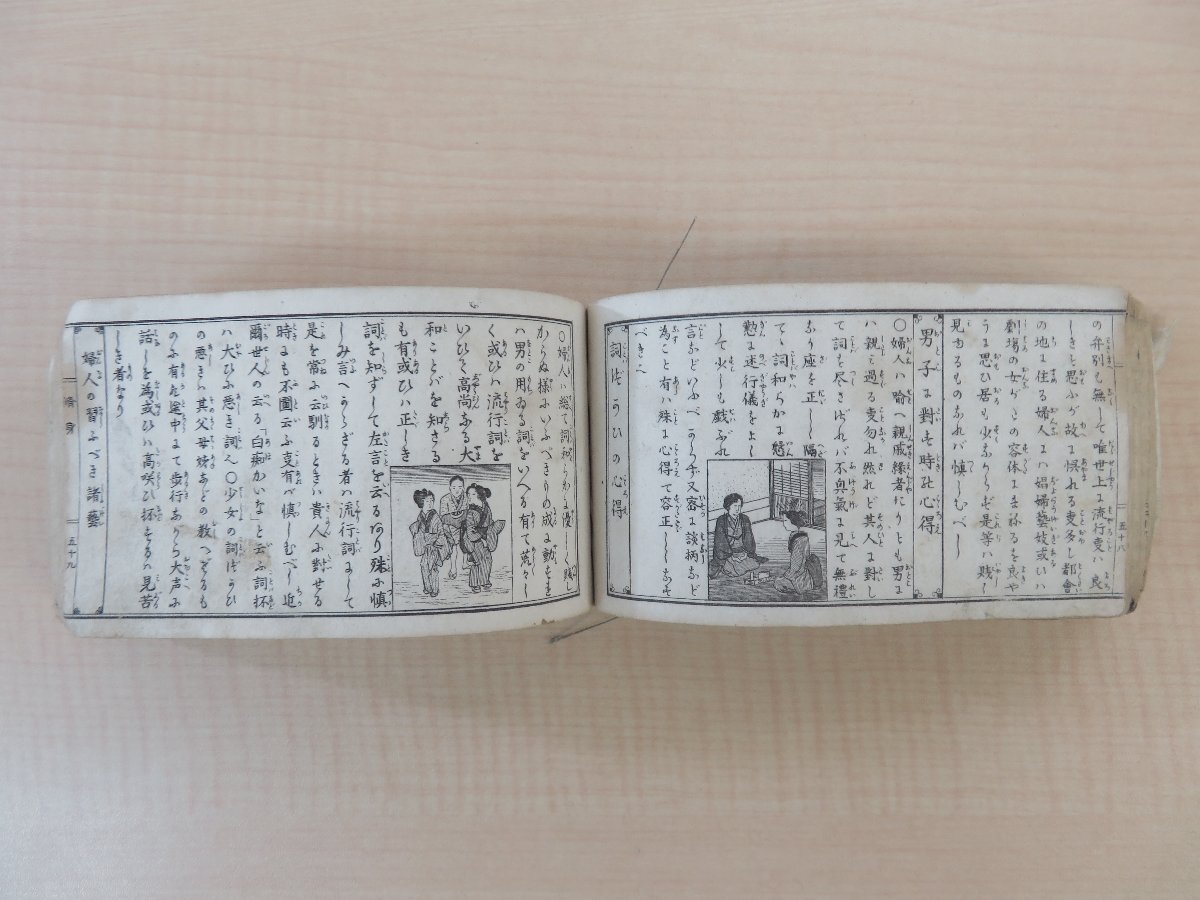 の弁別も無して唯世上に流行事ハ良
しきと思ふが故に悞れる事多し都會
の地に住る婦人にハ娼婦藝妓或いハ
劇場の女がたの容体にまねるを良や
うに思ひ居も少なからず是等ハ賤し
見ゆるものなれバ慎しむべし
男子に對する時の心得
〇婦人ハ喩へ親戚縁者たりとも男に
ハ親ミ過る事勿れ然れど其人に對し
て詞も尽さゞれバ不興氣に見て無禮
なり座を正し隔
て詞和らかに慇
懃に述行儀をよ
して少しも戯ぶれ
言などいふべからず又密に談柄など
為こと有ハ殊に心得て容正しくなす
べき
詞づかひの心得
五十八
〇婦人ハ総て詞和らかに優しく賤
からぬ様にいふべきもの成に動もす
ハ男の用ゐる詞をいへる有て荒々し
く或ひハ流行詞を
いひて高尚なる大
和ことバを知ざる
も有或ひハ正しき
詞を知ずして左言を云るあり殊に慎
しみ言べからざる者ハ流行詞にして
是を常に云馴るときハ貴人に對せる
時にも不圖云ふ事有べし慎しむべし近
爾世人の云る「白痴かいな」と云ふ詞抔
ハ大ひに悪き詞〇少女の詞づかひ
の悪きハ其父母姉などの教へざるも
のに有た途中にて歩行ながら大声に
話しを為或ひハ高咲ひ抔するハ見苦
しき者なり
婦人の習ふべき諸藝
脩身
五十九